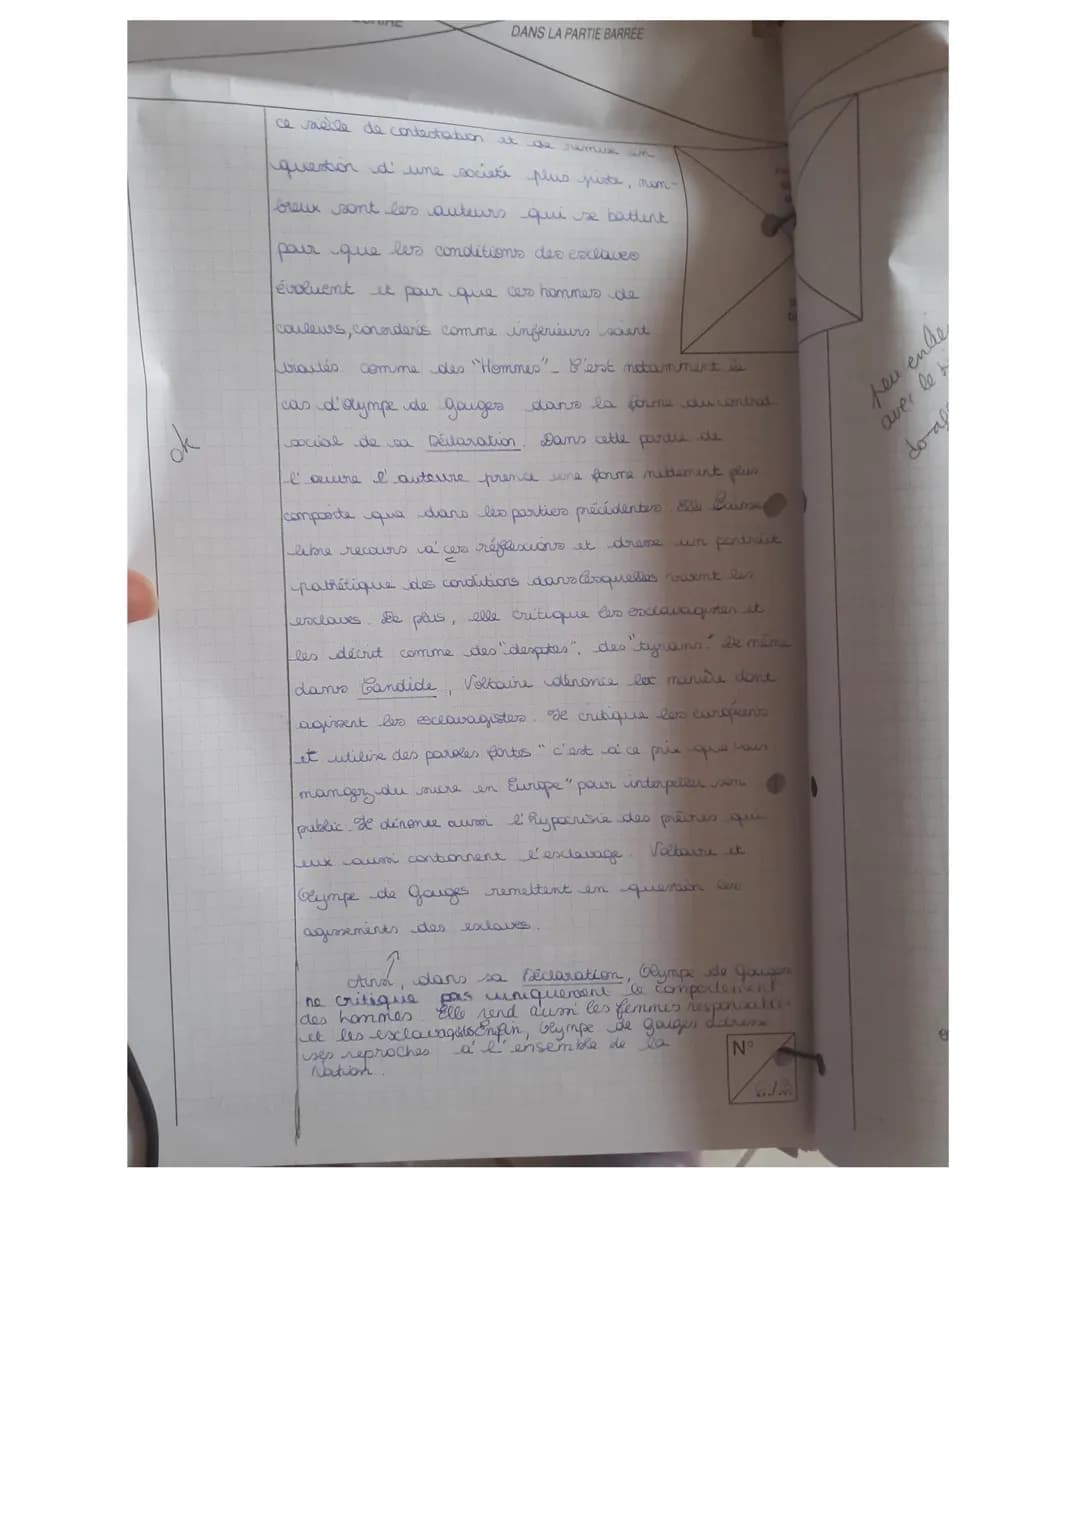 DANS LA PARTIE BARRÉE
ce siècle de contestation et de remise en
question d'une société plus juste, nom-
breux sont les auteurs qui se battent
pour que les conditions des esclaves
évoluent et pour que ces hommes de
couleurs, considérés comme inférieurs soient
traités comme des "Hommes". C'est notamment le
cas d'Olympe de Gouges dans la forme du contrat
social de sa Déclaration. Dans cette partie de
l'œuvre l'auteure prence une forme nettement plus
composte que dans les parties précédentes. Elle laisse
libre recours à ces réflexions et dresse un portrait
pathétique des conditions dans lesquelles vivent les
esclaves. De plus, elle critique les esclavagistes et
les décrit comme des "despotes", des "tyrans". De même
dans Candide, Voltaire dénonce la manière dont
agissent les esclavagistes. Il critique les européens
et utilise des paroles fortes "c'est à ce prix que vous
mangez du sucre en Europe" pour interpeller son
public. Il dénonce aussi l'hypocrisie des prêtres qui
eux aussi cautionnent l'esclavage. Voltaire et
Olympe de Gouges remettent en question les
agissements des esclaves.
Ainsi, dans sa Déclaration, Olympe de Gouges
ne critique pas uniquement le comportement
des hommes. Elle rend aussi les femmes responsables
et les esclavagistes. Enfin, Olympe de Gouges adresse
ses reproches à l'ensemble de la
Nation.
N°
ok
avec le